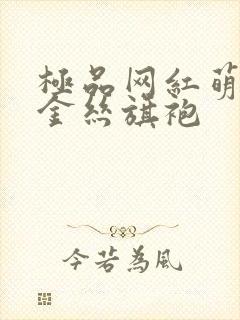 極品网紅萌
金丝旗袍
今若為風